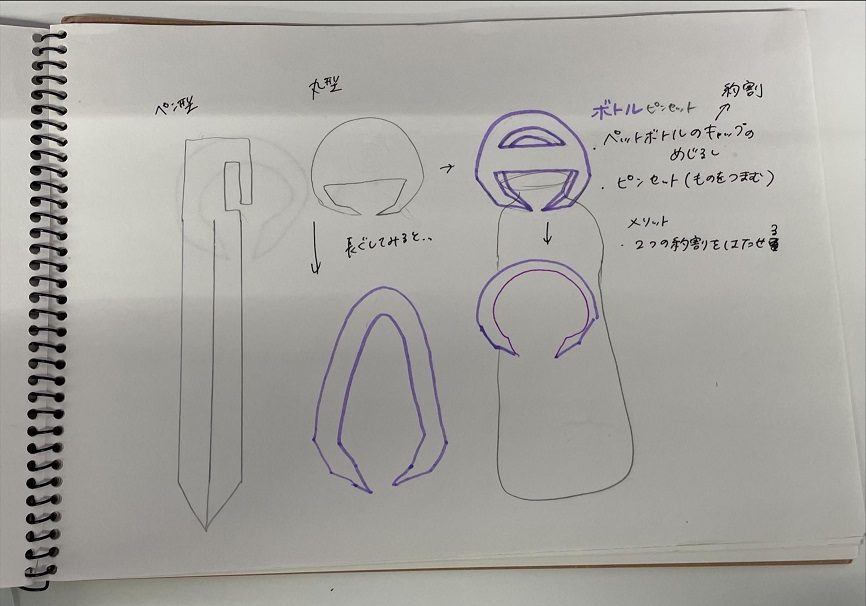 ペン型
丸型
長ぐしてみると..
ボトルピンセット
役割
・ペットボトルのキャップの
めじるし
・ピンセット(ものをつまむ)
メリット
・2つの役割をはたせる